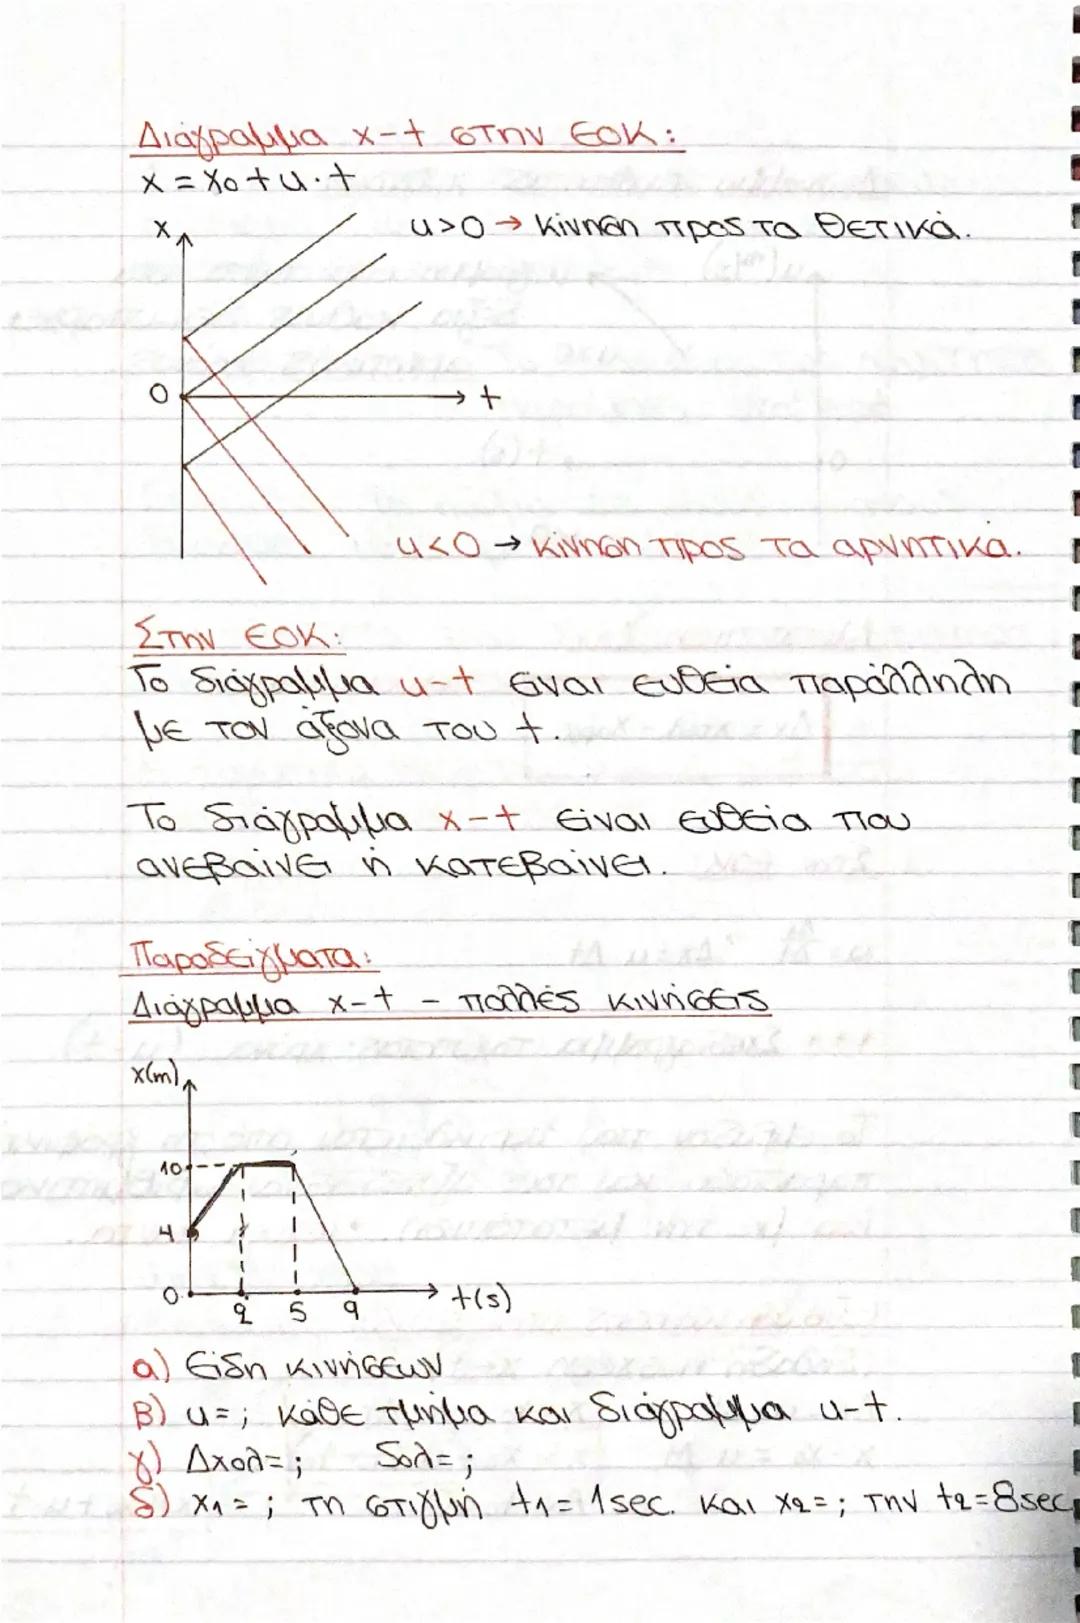 Διάγραμμα x-t στην ΕΟΚ:
x = x0 + u·t
x
u>0 → κίνηση προς τα θετικά.
0
t
u<0 → κίνηση προς τα αρνητικά.
Στην ΕΟΚ:
Το διάγραμμα u-t είναι ευθεία παράλληλη
με τον άξονα του t.
Το διάγραμμα x-t είναι ευθεία που
ανεβαίνει ή κατεβαίνει.
Παραδείγματα:
Διάγραμμα x-t - πολλές κινήσεις
x(m)
10
4
0
2 5 9
t(s)
α) Είδη κινήσεων
β) u=; κάθε τμήμα και διάγραμμα u-t.
γ) Δxολ=; Sολ=;
δ) x1=; τη στιγμή t1=1sec. και x2=; την t2=8sec